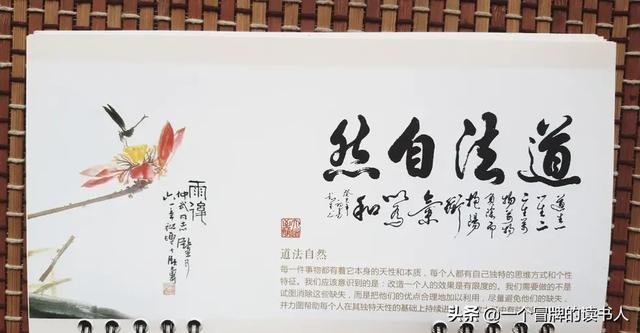 道法自然
道生一
一生二
物萬物
負陰而
抱陽
衝
氣
以為
和
道法自然
每一件事物都有着它本身的天性和本质，每个人都有自己独特的思维方式和个性
特征。我们应该意识到的是：改造一个人的效果是有限度的。我们需要做的不是
试图消除这些缺失，而是把他们的优点合理地加以利用，尽量避免他们的缺失，
并力图帮助每个人在其独特天性的基础上持续进
头条 @一个冒牌的读书人